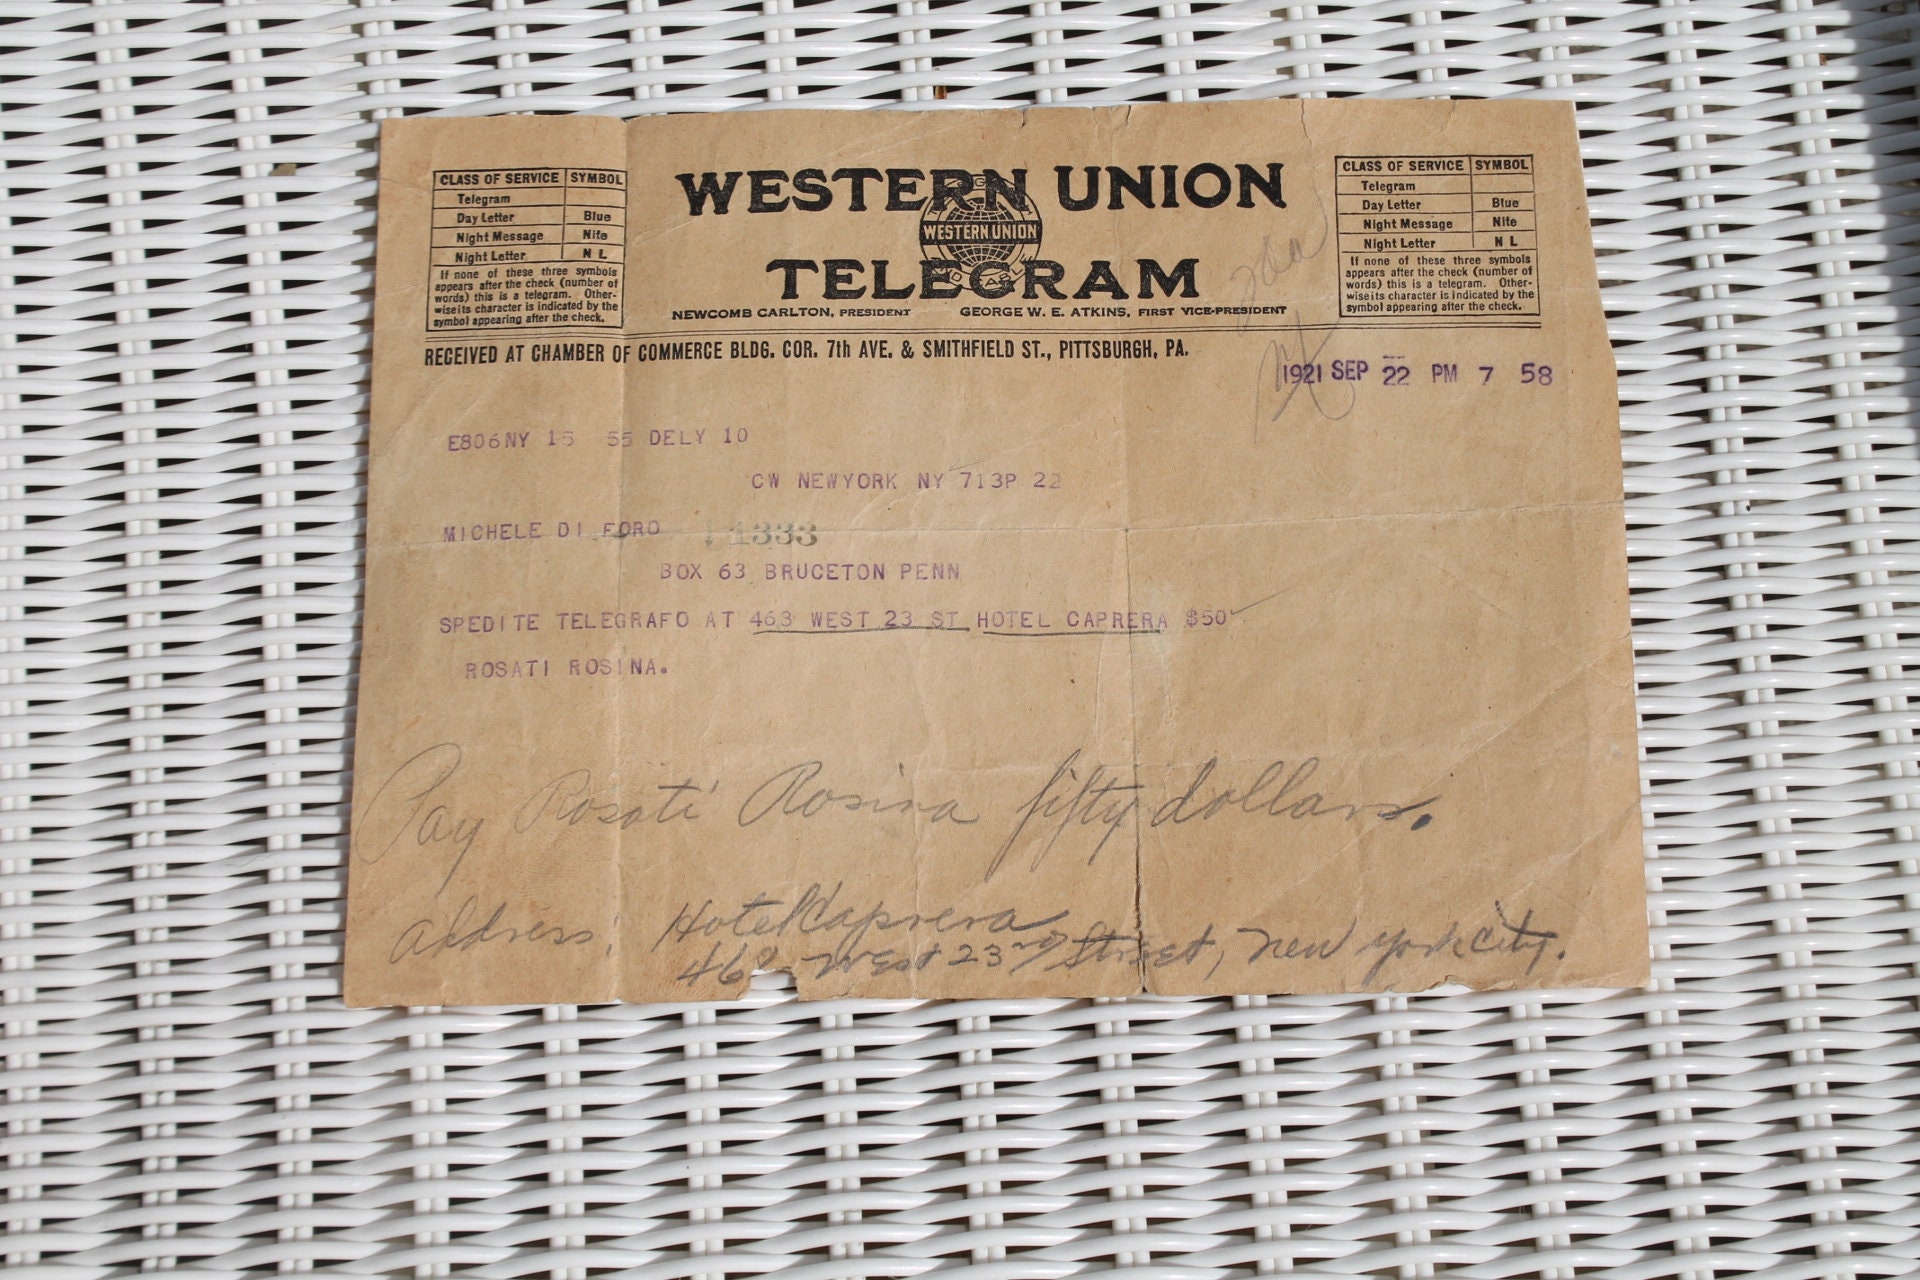 WESTERN UNION
WESTERN UNION
TELEGRAM
NEWCOMB CARLTON, PRESIDENT GEORGE W. E. ATKINS, FIRST VICE-PRESIDENT
CLASS OF SERVICE SYMBOL
Telegram
Day Letter Blue
Night Message Nite
Night Letter N L
If none of these three symbols
appears after the check (number of
words) this is a telegram. Other-
wise its character is indicated by the
symbol appearing after the check.
CLASS OF SERVICE SYMBOL
Telegram
Day Letter Blue
Night Message Nite
Night Letter N L
If none of these three symbols
appears after the check (number of
words) this is a telegram. Other-
wise its character is indicated by the
symbol appearing after the check.
RECEIVED AT CHAMBER OF COMMERCE BLDG. COR. 7th AVE. & SMITHFIELD ST., PITTSBURGH, PA.
1921 SEP 22 PM 7 58
E806NY 15 55 DELY 10
CW NEWYORK NY 713P 22
MICHELE DI FORO 1333
BOX 63 BRUCETON PENN
SPEDITE TELEGRAFO AT 463 WEST 23 ST HOTEL CAPRERA $50
ROSATI ROSINA.
Pay Rosati Rosina fifty dollars.
Address: Hotel Caprera
West 23rd Street, New York City.